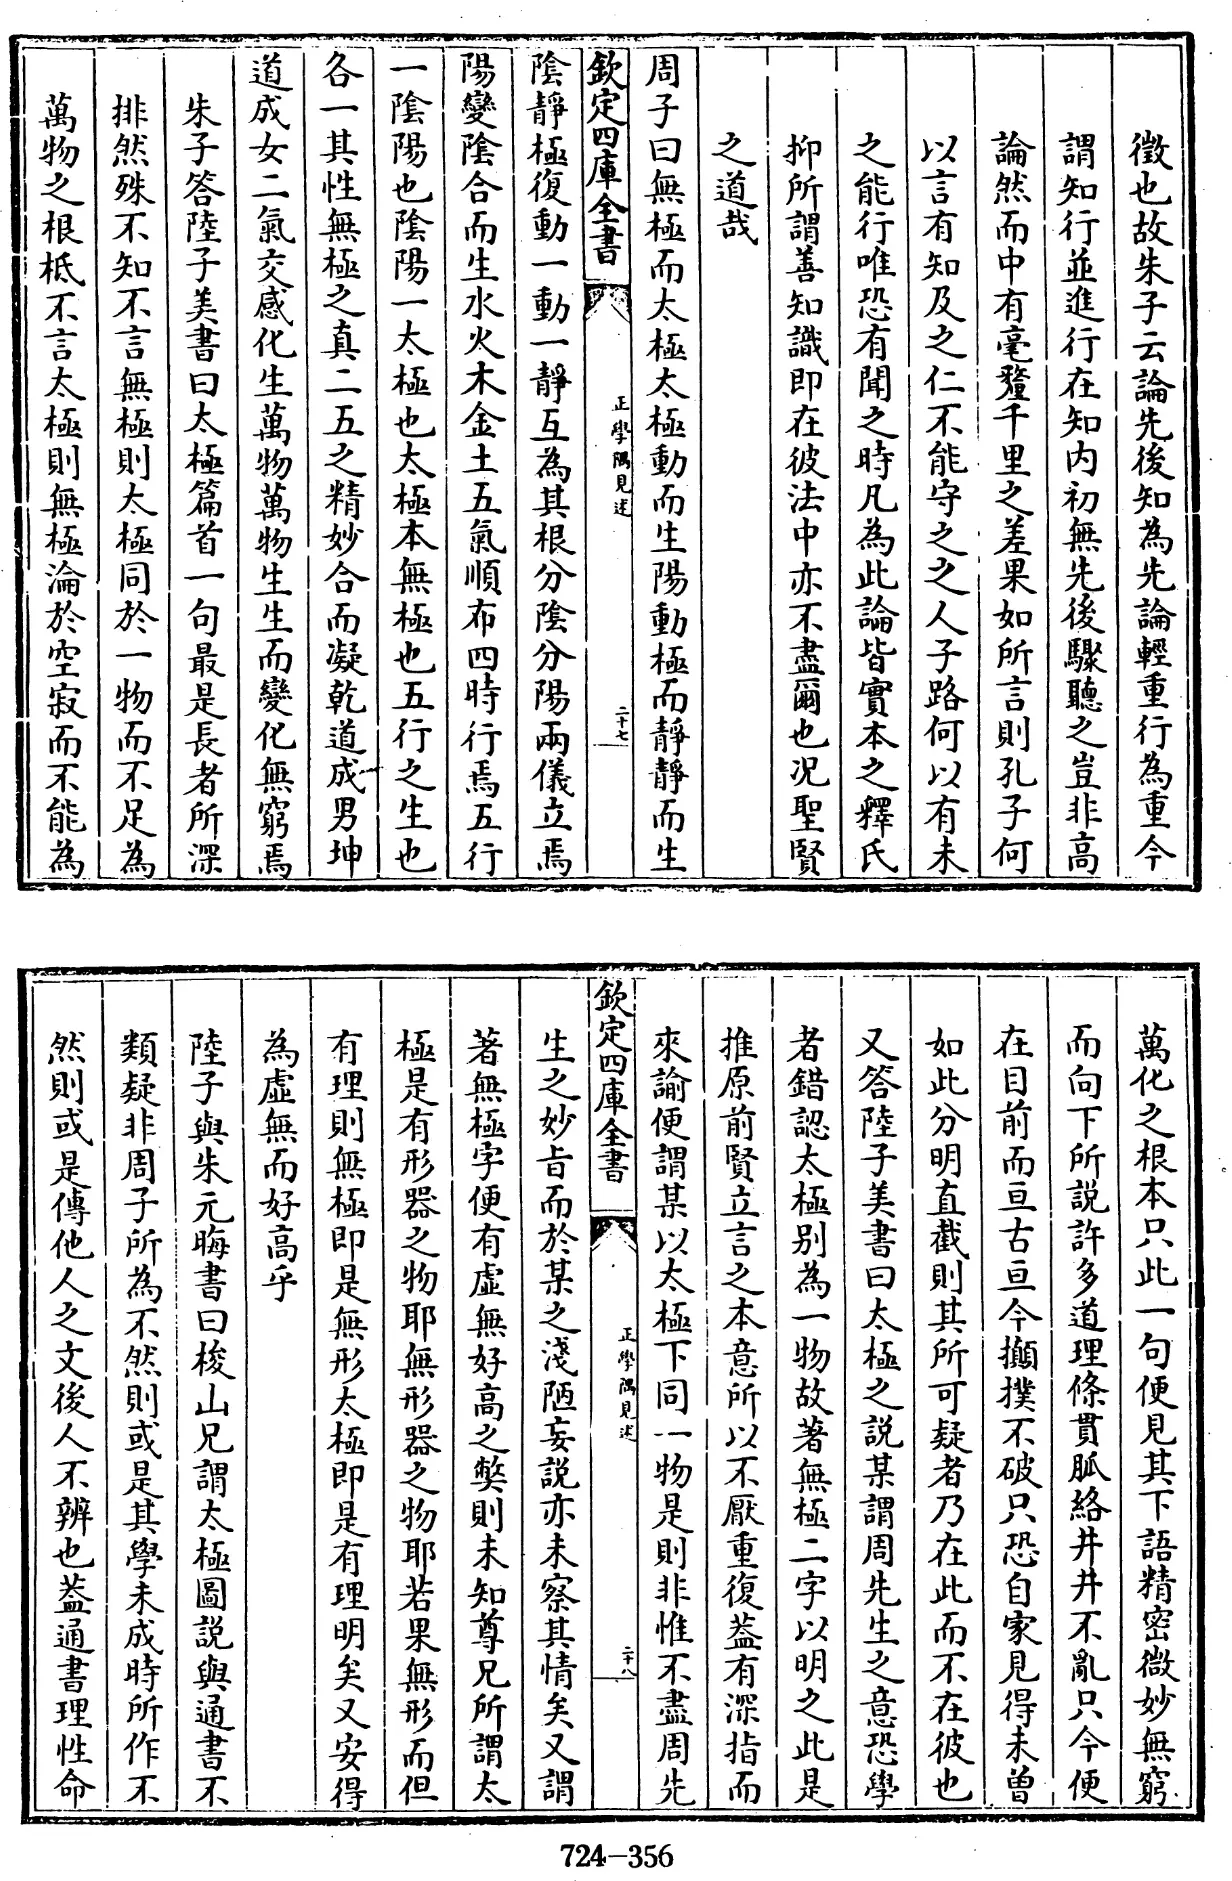 徵也故朱子云論先後知為先論輕重行為重今
謂知行並進行在知内初無先後驟聽之豈非高
論然而中有毫釐千里之差果如所言則孔子何
以言有知及之仁不能守之之人子路何以有未
之能行唯恐有聞之時凡為此論皆實本之釋氏
抑所謂善知識即在彼法中亦不盡爾也况聖賢
之道哉
周子曰無極而太極太極動而生陽動極而靜靜而生
欽定四庫全書
正學隅見述
二十七
陰靜極復動一動一靜互為其根分陰分陽兩儀立焉
陽變陰合而生水火木金土五氣順布四時行焉五行
一陰陽也陰陽一太極也太極本無極也五行之生也
各一其性無極之真二五之精妙合而凝乾道成男坤
道成女二氣交感化生萬物萬物生生而變化無窮焉
朱子答陸子美書曰太極篇首一句最是長者所深
排然殊不知不言無極則太極同於一物而不足為
萬物之根柢不言太極則無極淪於空寂而不能為
萬化之根本只此一句便見其下語精密微妙無窮
而向下所説許多道理條貫脈絡井井不亂只今便
在目前而亘古亘今攧撲不破只恐自家見得未曾
如此分明直截則其所可疑者乃在此而不在彼也
又答陸子美書曰太極之説某謂周先生之意恐學
者錯認太極别為一物故著無極二字以明之此是
推原前賢立言之本意所以不厭重復葢有深指而
來諭便謂某以太極下同一物是則非惟不盡周先
欽定四庫全書
正學隅見述
二十八
生之妙旨而於某之淺陋妄説亦未察其情矣又謂
著無極字便有虚無好高之獘則未知尊兄所謂太
極是有形器之物耶無形器之物耶若果無形而但
有理則無極即是無形太極即是有理明矣又安得
為虚無而好高乎
陸子與朱元晦書曰梭山兄謂太極圖説與通書不
類疑非周子所為不然則或是其學未成時所作不
然則或是傳他人之文後人不辨也葢通書理性命
724-356